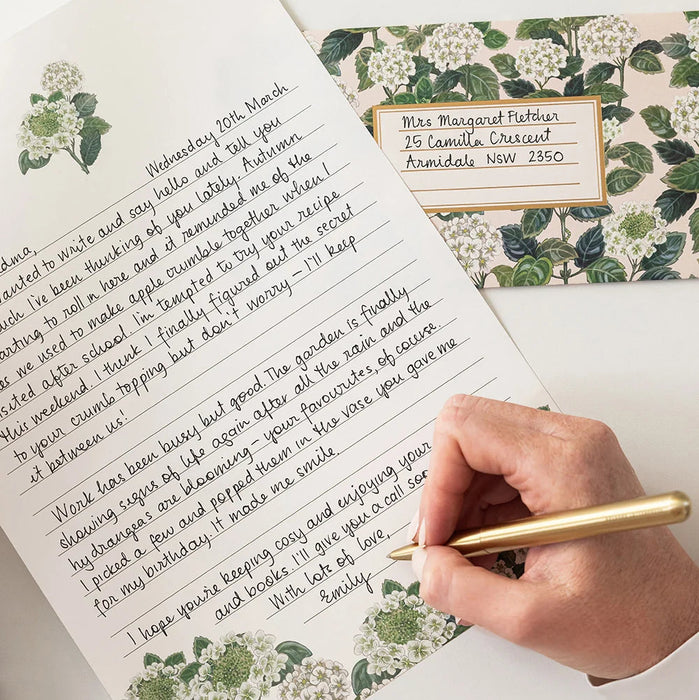 Wednesday 20th March
wanted to write and say hello and tell you
much I've been thinking of you lately. Autumn
starting to roll in here and it reminded me of the
we used to make apple crumble together when I
visited after school. I'm tempted to try your recipe
this weekend. I think I finally figured out the secret
to your crumb topping but don't worry – I'll keep
it between us!
Work has been busy but good. The garden is finally
showing signs of life again after all the rain and the
hydrangeas are blooming – your favourites, of course.
I picked a few and popped them in the vase you gave me
for my birthday. It made me smile.
I hope you're keeping cosy and enjoying your
and books. I'll give you a call soo
With lots of love,
Emily
Mrs Margaret Fletcher
25 Camilla Crescent
Armidale NSW 2350